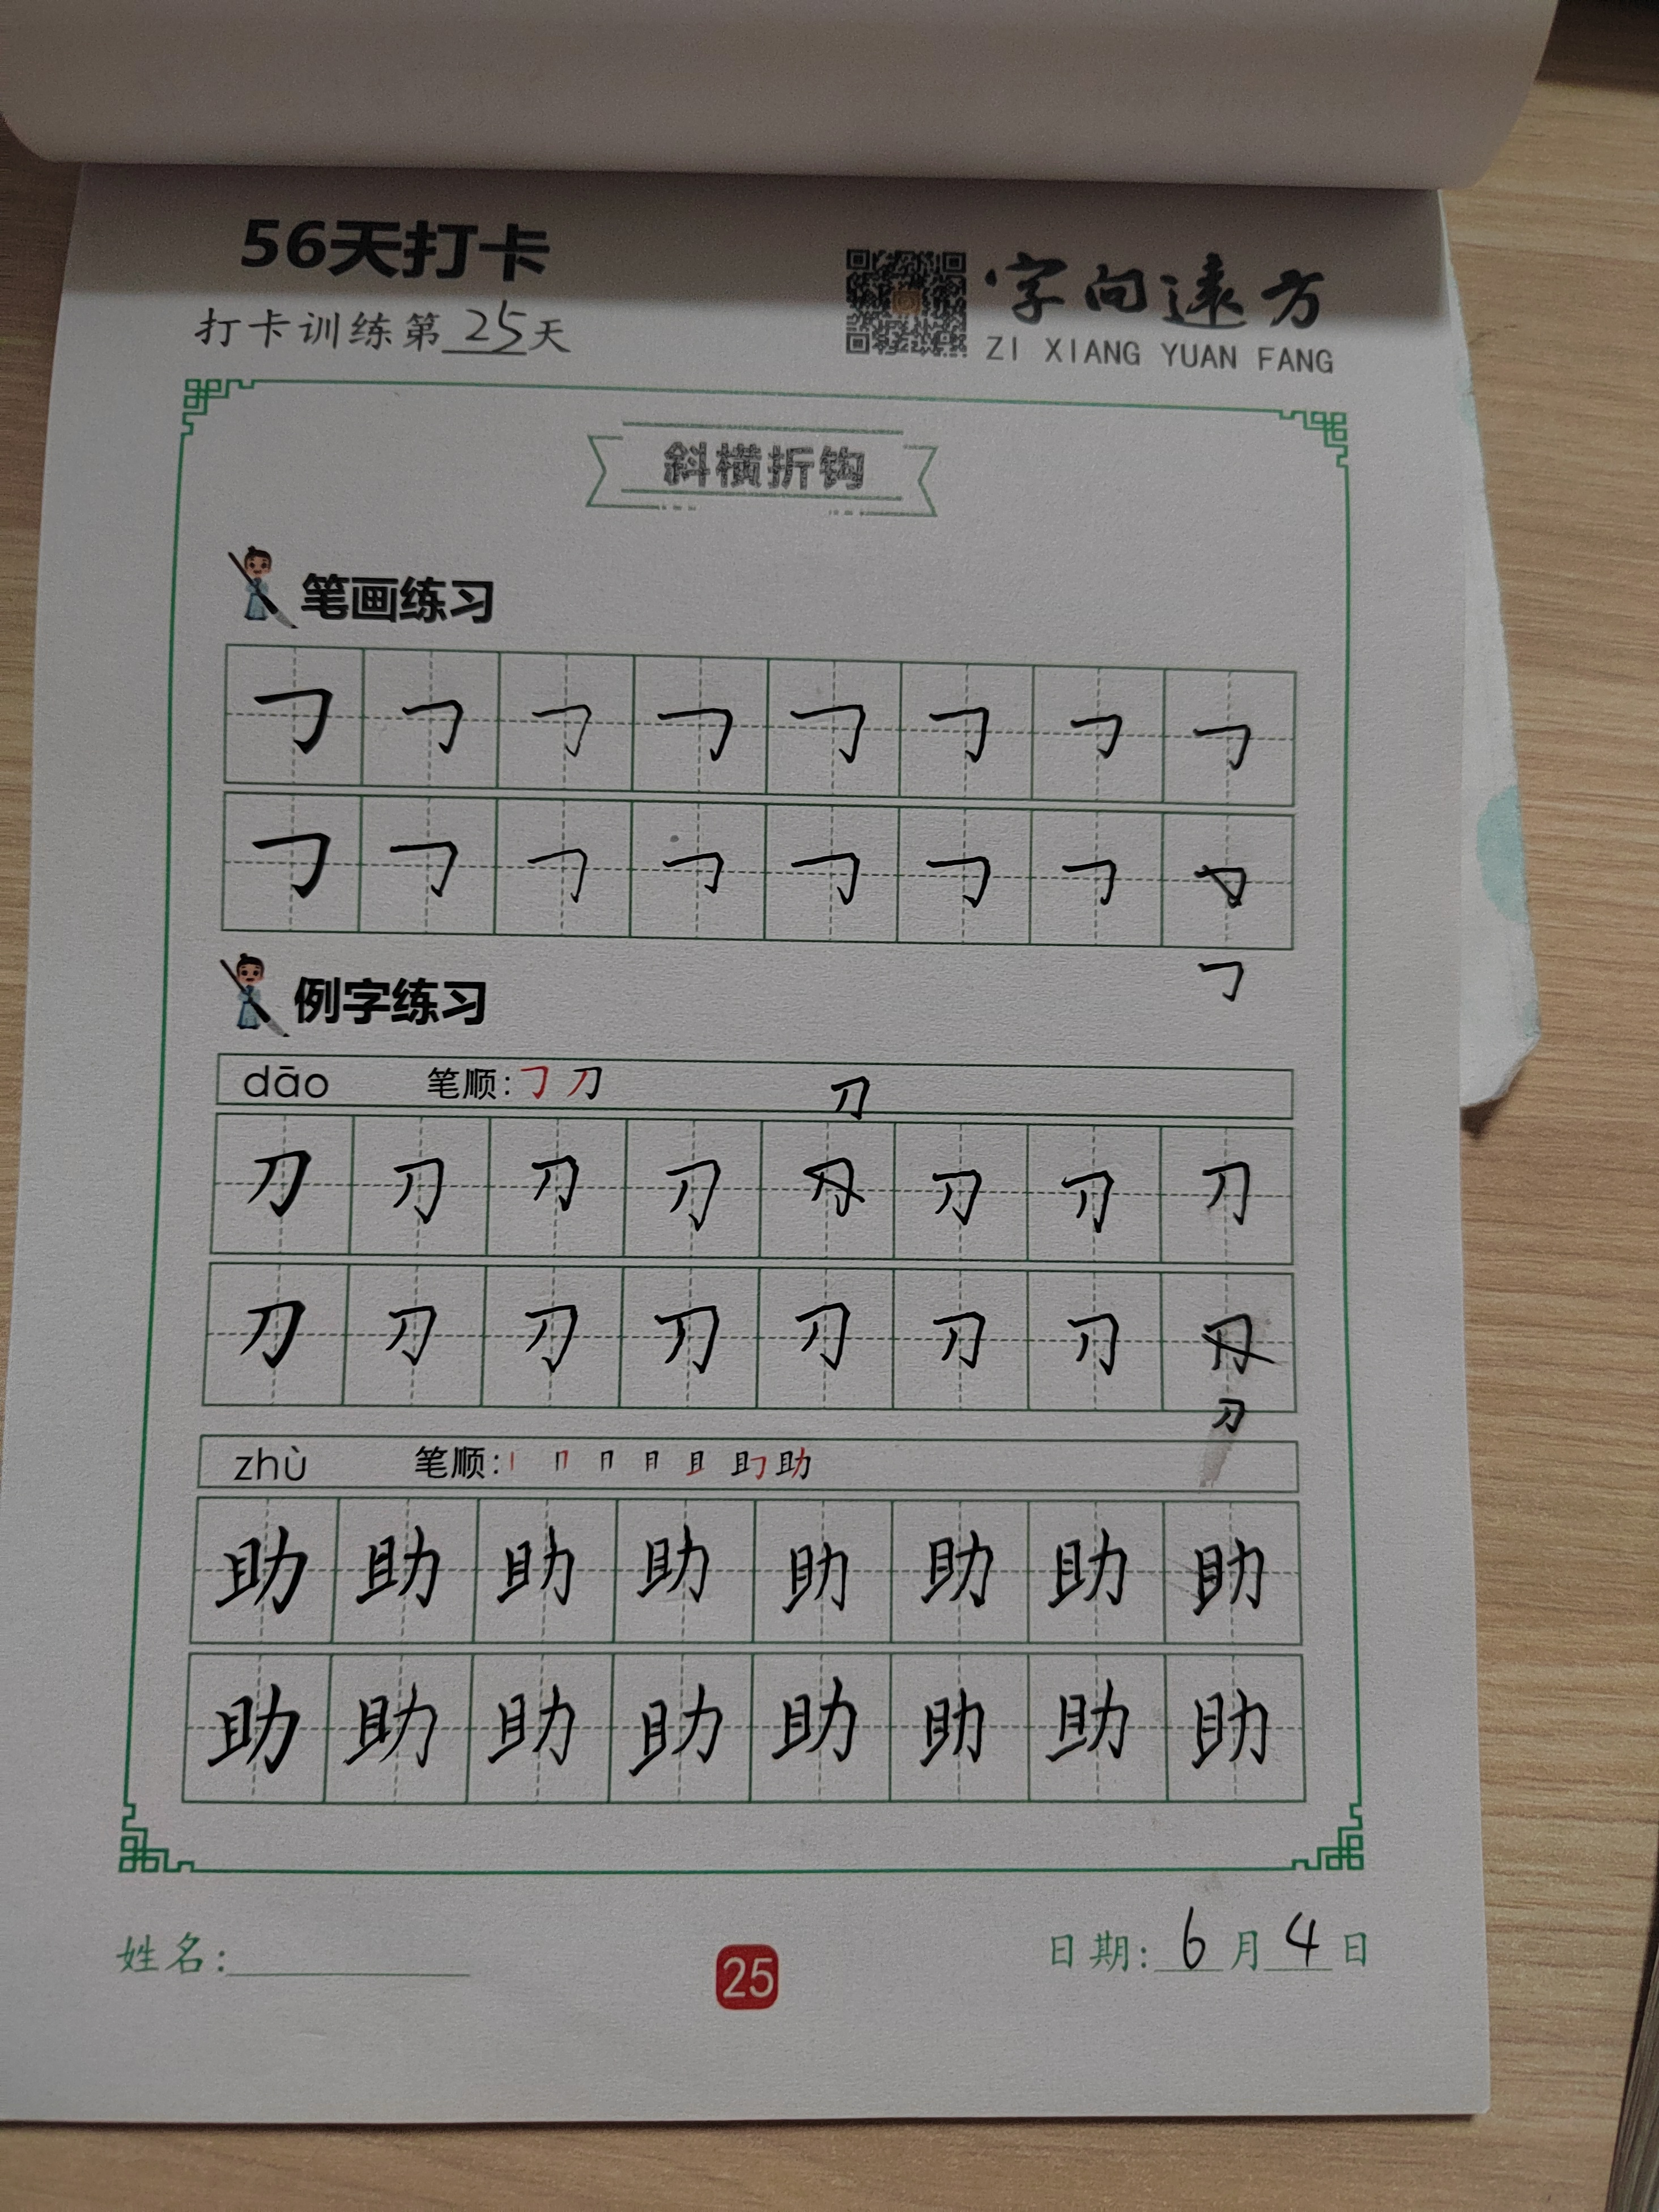 56天打卡
打卡训练第25天
字向远方
ZI XIANG YUAN FANG
斜横折钩
笔画练习
㇆ ㇆ ㇆ ㇆ ㇆ ㇆ ㇆ ㇆
㇆ ㇆ ㇆ ㇆ ㇆ ㇆ ㇆
㇆
例字练习
dāo 笔顺:㇆ 刀 刀
刀 刀 刀 刀 刀 刀 刀
刀 刀 刀 刀 刀 刀 刀
刀
zhù 笔顺:丨 冂 月 且 助
助 助 助 助 助 助 助 助
助 助 助 助 助 助 助 助
姓名:
25
日期:6月4日